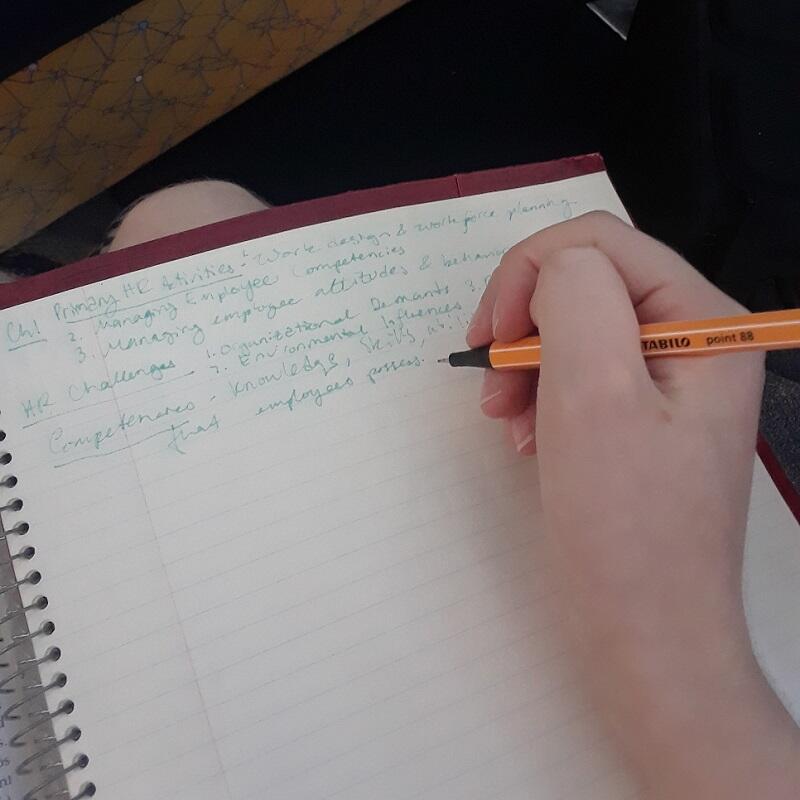 Ch1 Primary HR Activities: 1. Work design & workforce planning
2. Managing Employee Competencies
3. Managing employee attitudes & behavior
HR Challenges - 1. Organizational Demands 3.
2. Environmental Influences
Competencies - Knowledge, skills,
that employees possess.
STABILO point 88